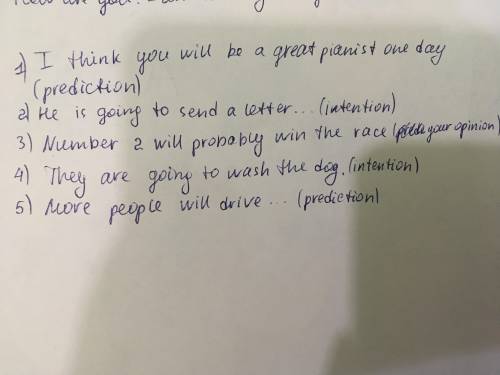 you
1) I think you will be a great pianist one day
(prediction)
2) He is going to send a letter... (intention)
3) Number 2 will probably win the race (your opinion)
4) They are going to wash the dog. (intention)
5) More people will drive... (prediction)